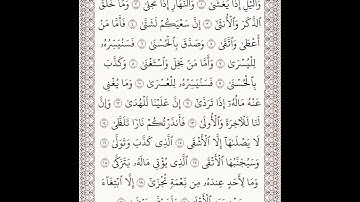 وَٱلَّيۡلِ إِذَا يَغۡشَىٰ ١ وَٱلنَّهَارِ إِذَا تَجَلَّىٰ ٢ وَمَا خَلَقَ
ٱلذَّكَرَ وَٱلۡأُنثَىٰٓ ٣ إِنَّ سَعۡيَكُمۡ لَشَتَّىٰ ٤ فَأَمَّا مَنۡ
أَعۡطَىٰ وَٱتَّقَىٰ ٥ وَصَدَّقَ بِٱلۡحُسۡنَىٰ ٦ فَسَنُيَسِّرُهُۥ
لِلۡيُسۡرَىٰ ٧ وَأَمَّا مَنۢ بَخِلَ وَٱسۡتَغۡنَىٰ ٨ وَكَذَّبَ
بِٱلۡحُسۡنَىٰ ٩ فَسَنُيَسِّرُهُۥ لِلۡعُسۡرَىٰ ١٠ وَمَا يُغۡنِي
عَنۡهُ مَالُهُۥٓ إِذَا تَرَدَّىٰٓ ١١ إِنَّ عَلَيۡنَا لَلۡهُدَىٰ ١٢ وَإِنَّ
لَنَا لَلۡأٓخِرَةَ وَٱلۡأُولَىٰ ١٣ فَأَنذَرۡتُكُمۡ نَارٗا تَلَظَّىٰ ١٤
لَا يَصۡلَىٰهَآ إِلَّا ٱلۡأَشۡقَى ١٥ ٱلَّذِي كَذَّبَ وَتَوَلَّىٰ ١٦
وَسَيُجَنَّبُهَا ٱلۡأَتۡقَى ١٧ ٱلَّذِي يُؤۡتِي مَالَهُۥ يَتَزَكَّىٰ ١٨
وَمَا لِأَحَدٍ عِندَهُۥ مِن نِّعۡمَةٖ تُجۡزَىٰٓ ١٩ إِلَّا ٱبۡتِغَآءَ